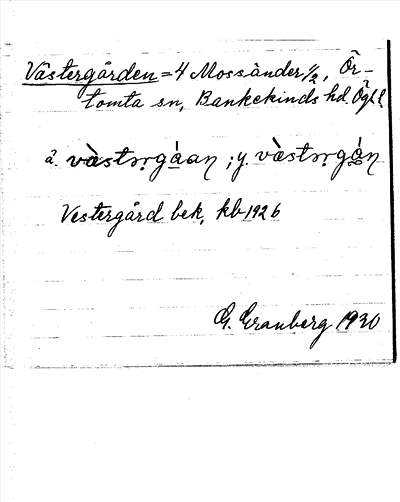 Västergården = 4 Mossänder 1/2, Ör-
tomta sn, Bankekinds hd. Ögl.
ä. vàstəṛgá̱an ; y. vàstəṛgá̱ṇ
Vestergård bek, kb 1926
G. Granberg 1930